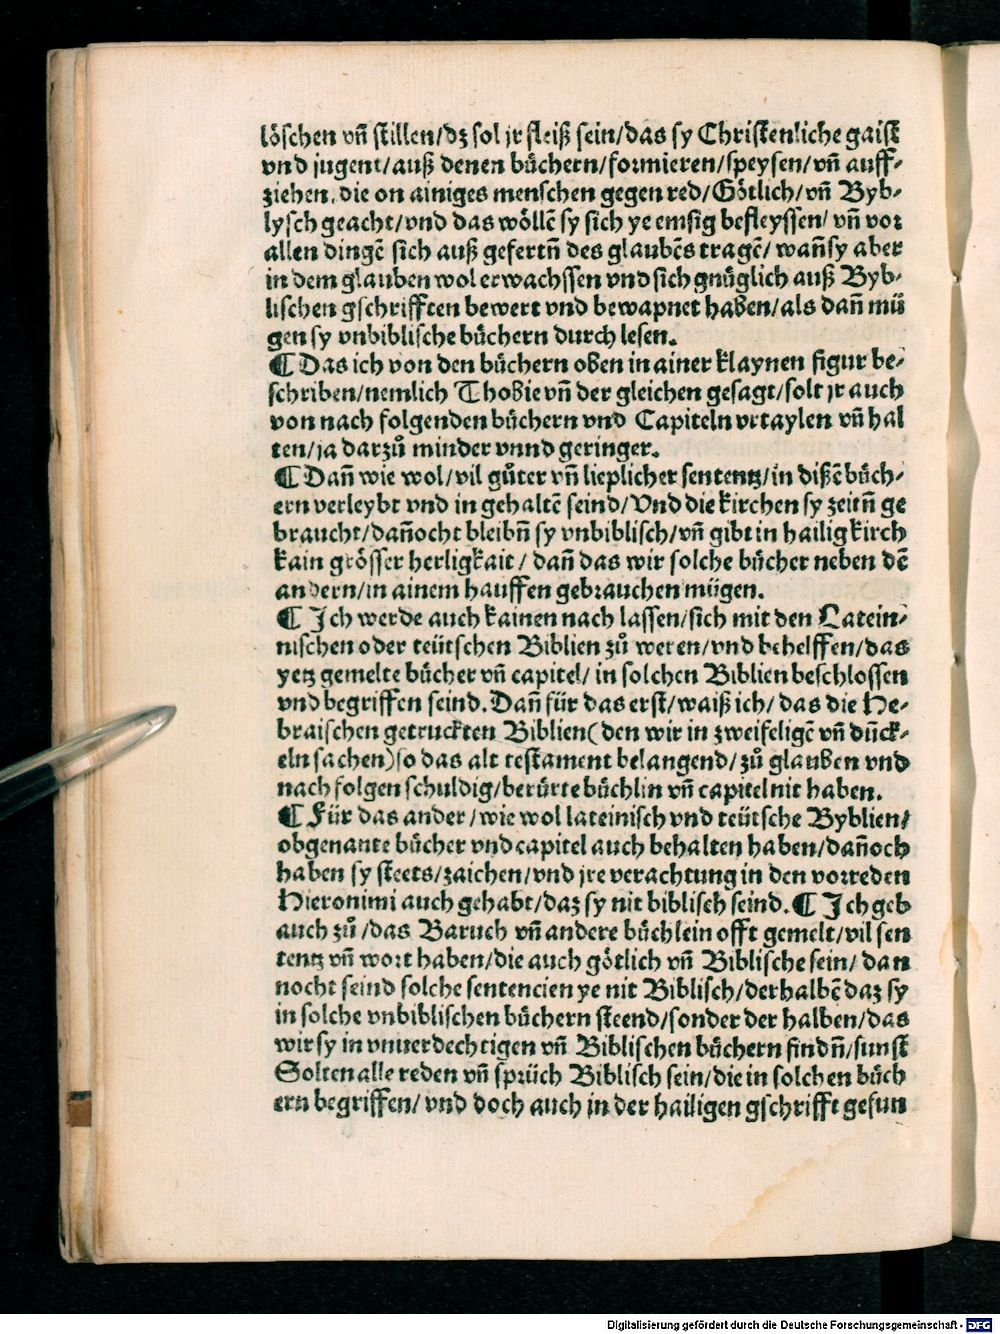 löschen vñ stillen/dz sol jr fleiß sein/das sy Christenliche gaist
vnd jugent/auß denen bůchern/formieren/speysen/vñ auff-
ziehen, die on ainiges menschen gegen red/Götlich/vñ Byb-
lysch geacht/vnd das wöllẽ sy sich ye emsig befleyssen/ vñ vor
allen dingẽ sich auß gefertñ des glaubẽs tragẽ/ wañ sy aber
in dem glauben wol erwachssen vnd sich gnůglich auß Byb-
lischen gschrifften bewert vnd bewapnet haben/als dañ mů
gen sy vnbiblische bůchern durch lesen.
¶ Das ich von den bůchern oben in ainer klaynen figur be-
schriben/nemlich Thobie vñ der gleichen gesagt/solt jr auch
von nach folgenden bůchern vnd Capiteln vrtaylen vñ hal
ten/ja darzů minder vnnd geringer.
¶ Dañ wie wol/vil gůter vñ lieplicher sententz/in dißẽ bůch-
ern verleybt vnd in gehaltẽ seind/Vnd die kirchen sy zeitñ ge
braucht/dañocht bleibñ sy vnbiblisch/vñ gibt in hailig kirch
kain grösser herligkait/ dañ das wir solche bůcher neben dẽ
andern/in ainem hauffen gebrauchen mügen.
¶ Ich werde auch kainen nach lassen/sich mit den Latein-
nischen oder teütschen Biblien zů weren/vnd behelffen/das
yetz gemelte bůcher vñ capitel/ in solchen Biblien beschlossen
vnd begriffen seind. Dañ für das erst/waiß ich/ das die He-
braischen getruckten Biblien(den wir in zweifeligẽ vñ dũck-
eln sachen)so das alt testament belangend/zů glauben vnd
nach folgen schuldig/berürte bůchlin vñ capitel nit haben.
¶ Für das ander/wie wol lateinisch vnd teütsche Byblien/
obgenante bůcher vnd capitel auch behalten haben/dañoch
haben sy steets/zaichen/vnd jre verachtung in den vorreden
Hieronimi auch gehabt/daz sy nit biblisch seind. ¶ Ich geb
auch zů/das Baruch vñ andere bůchlein offt gemelt/vil sen
tentz vñ wort haben/die auch götlich vñ Biblische sein/ dan
nocht seind solche sentencien ye nit Biblisch/derhalbẽ daz sy
in solche vnbiblischen bůchern steend/sonder der halben/das
wir sy in vnuerdechtigen vñ Biblischen bůchern findñ/sunst
Solten alle reden vñ sprüch Biblisch sein/die in solchen bůch
ern begriffen/vnd doch auch in der hailigen gschrifft gefun
Digitalisierung gefördert durch die Deutsche Forschungsgemeinschaft - DFG